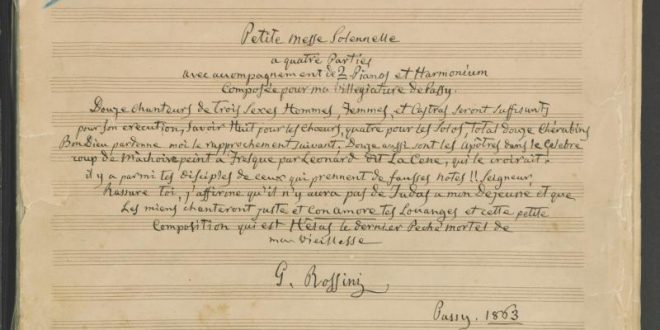 Petite Messe Solennelle
a quatre Parties
avec accompagnement de 2 Pianos et Harmonium
Composée pour ma Villégiature de Passy.
Douze chanteurs de trois Sexes Hommes, Femmes, et Castras seront suffisants
pour son execution, Savoir Huit pour les Chœurs, quatre pour les Solos, total Douze Chérubins
Bon Dieu pardonne moi le rapprochement suivant, Douze aussi sont les Apôtres dans le Celebre
coup de Machoire peint a Fresque par Leonard dit La Cene, qui le croirait.
il y a parmi tes disciples de ceux qui prennent de fausses notes!! Seigneur,
Rassure toi, j'affirme qu'il n'y aura pas de Judas a mon Dejeuné et que
Les miens chanteront juste et Con amore tes Louanges et cette petite
Composition qui est Hélas le dernier Peché mortel de
ma vieillesse
G. Rossini
Passy. 1863